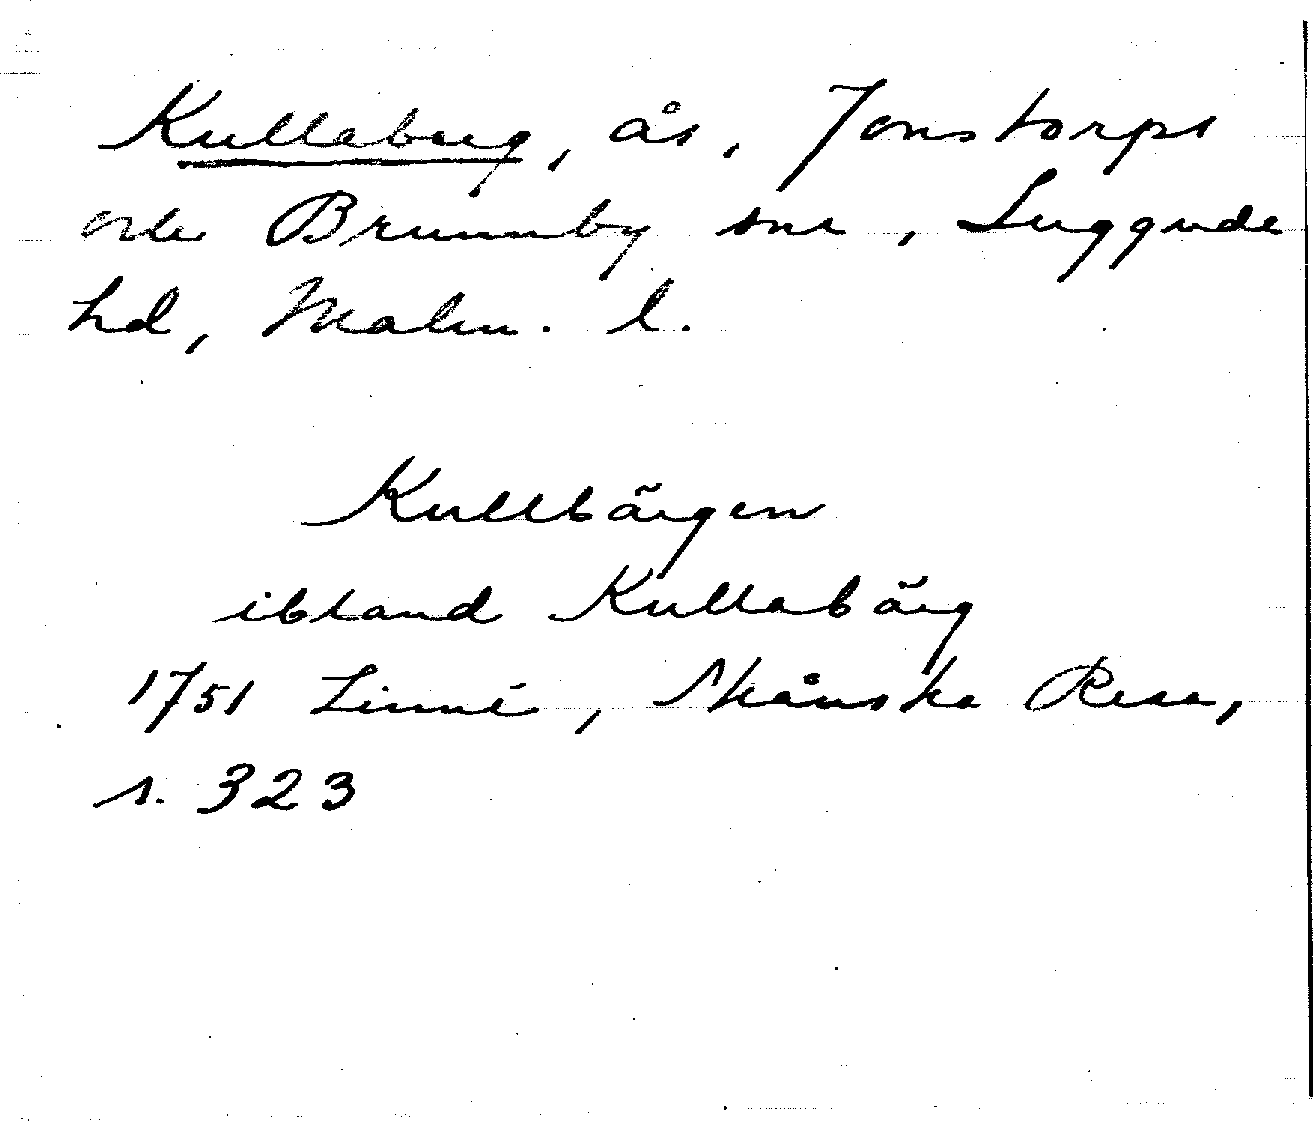 Kullaberg, ås, Jonstorps
och Brunnby snr, Luggude
hd, Malm. l.
Kullbärgen
ibland Kullabärg
1751 Linné, Skånska Resa,
s. 323